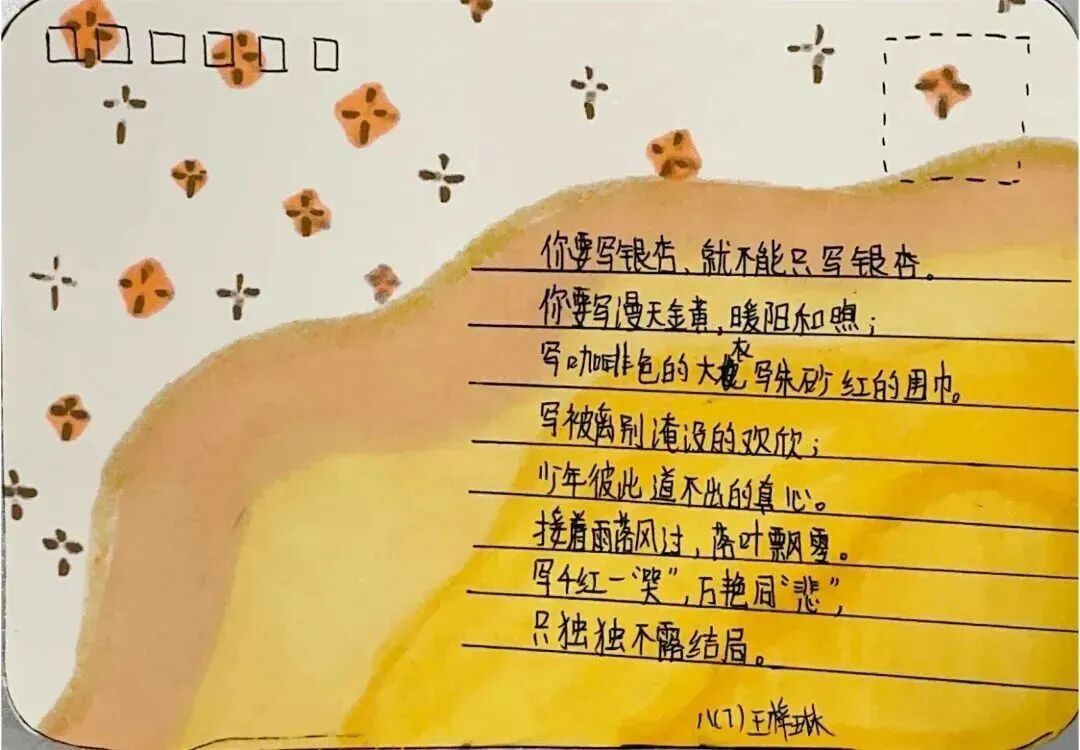 你要写银杏、就不能只写银杏。
你要写漫天金黄,暖阳和煦;
写咖啡色的大衣写朱砂红的围巾。
写被离别淹没的欢欣;
少年彼此道不出的真心。
接着雨落风过,落叶飘零。
写千红一“哭”,万艳同“悲”,
只独独不露结局。
八(7)王梓琳